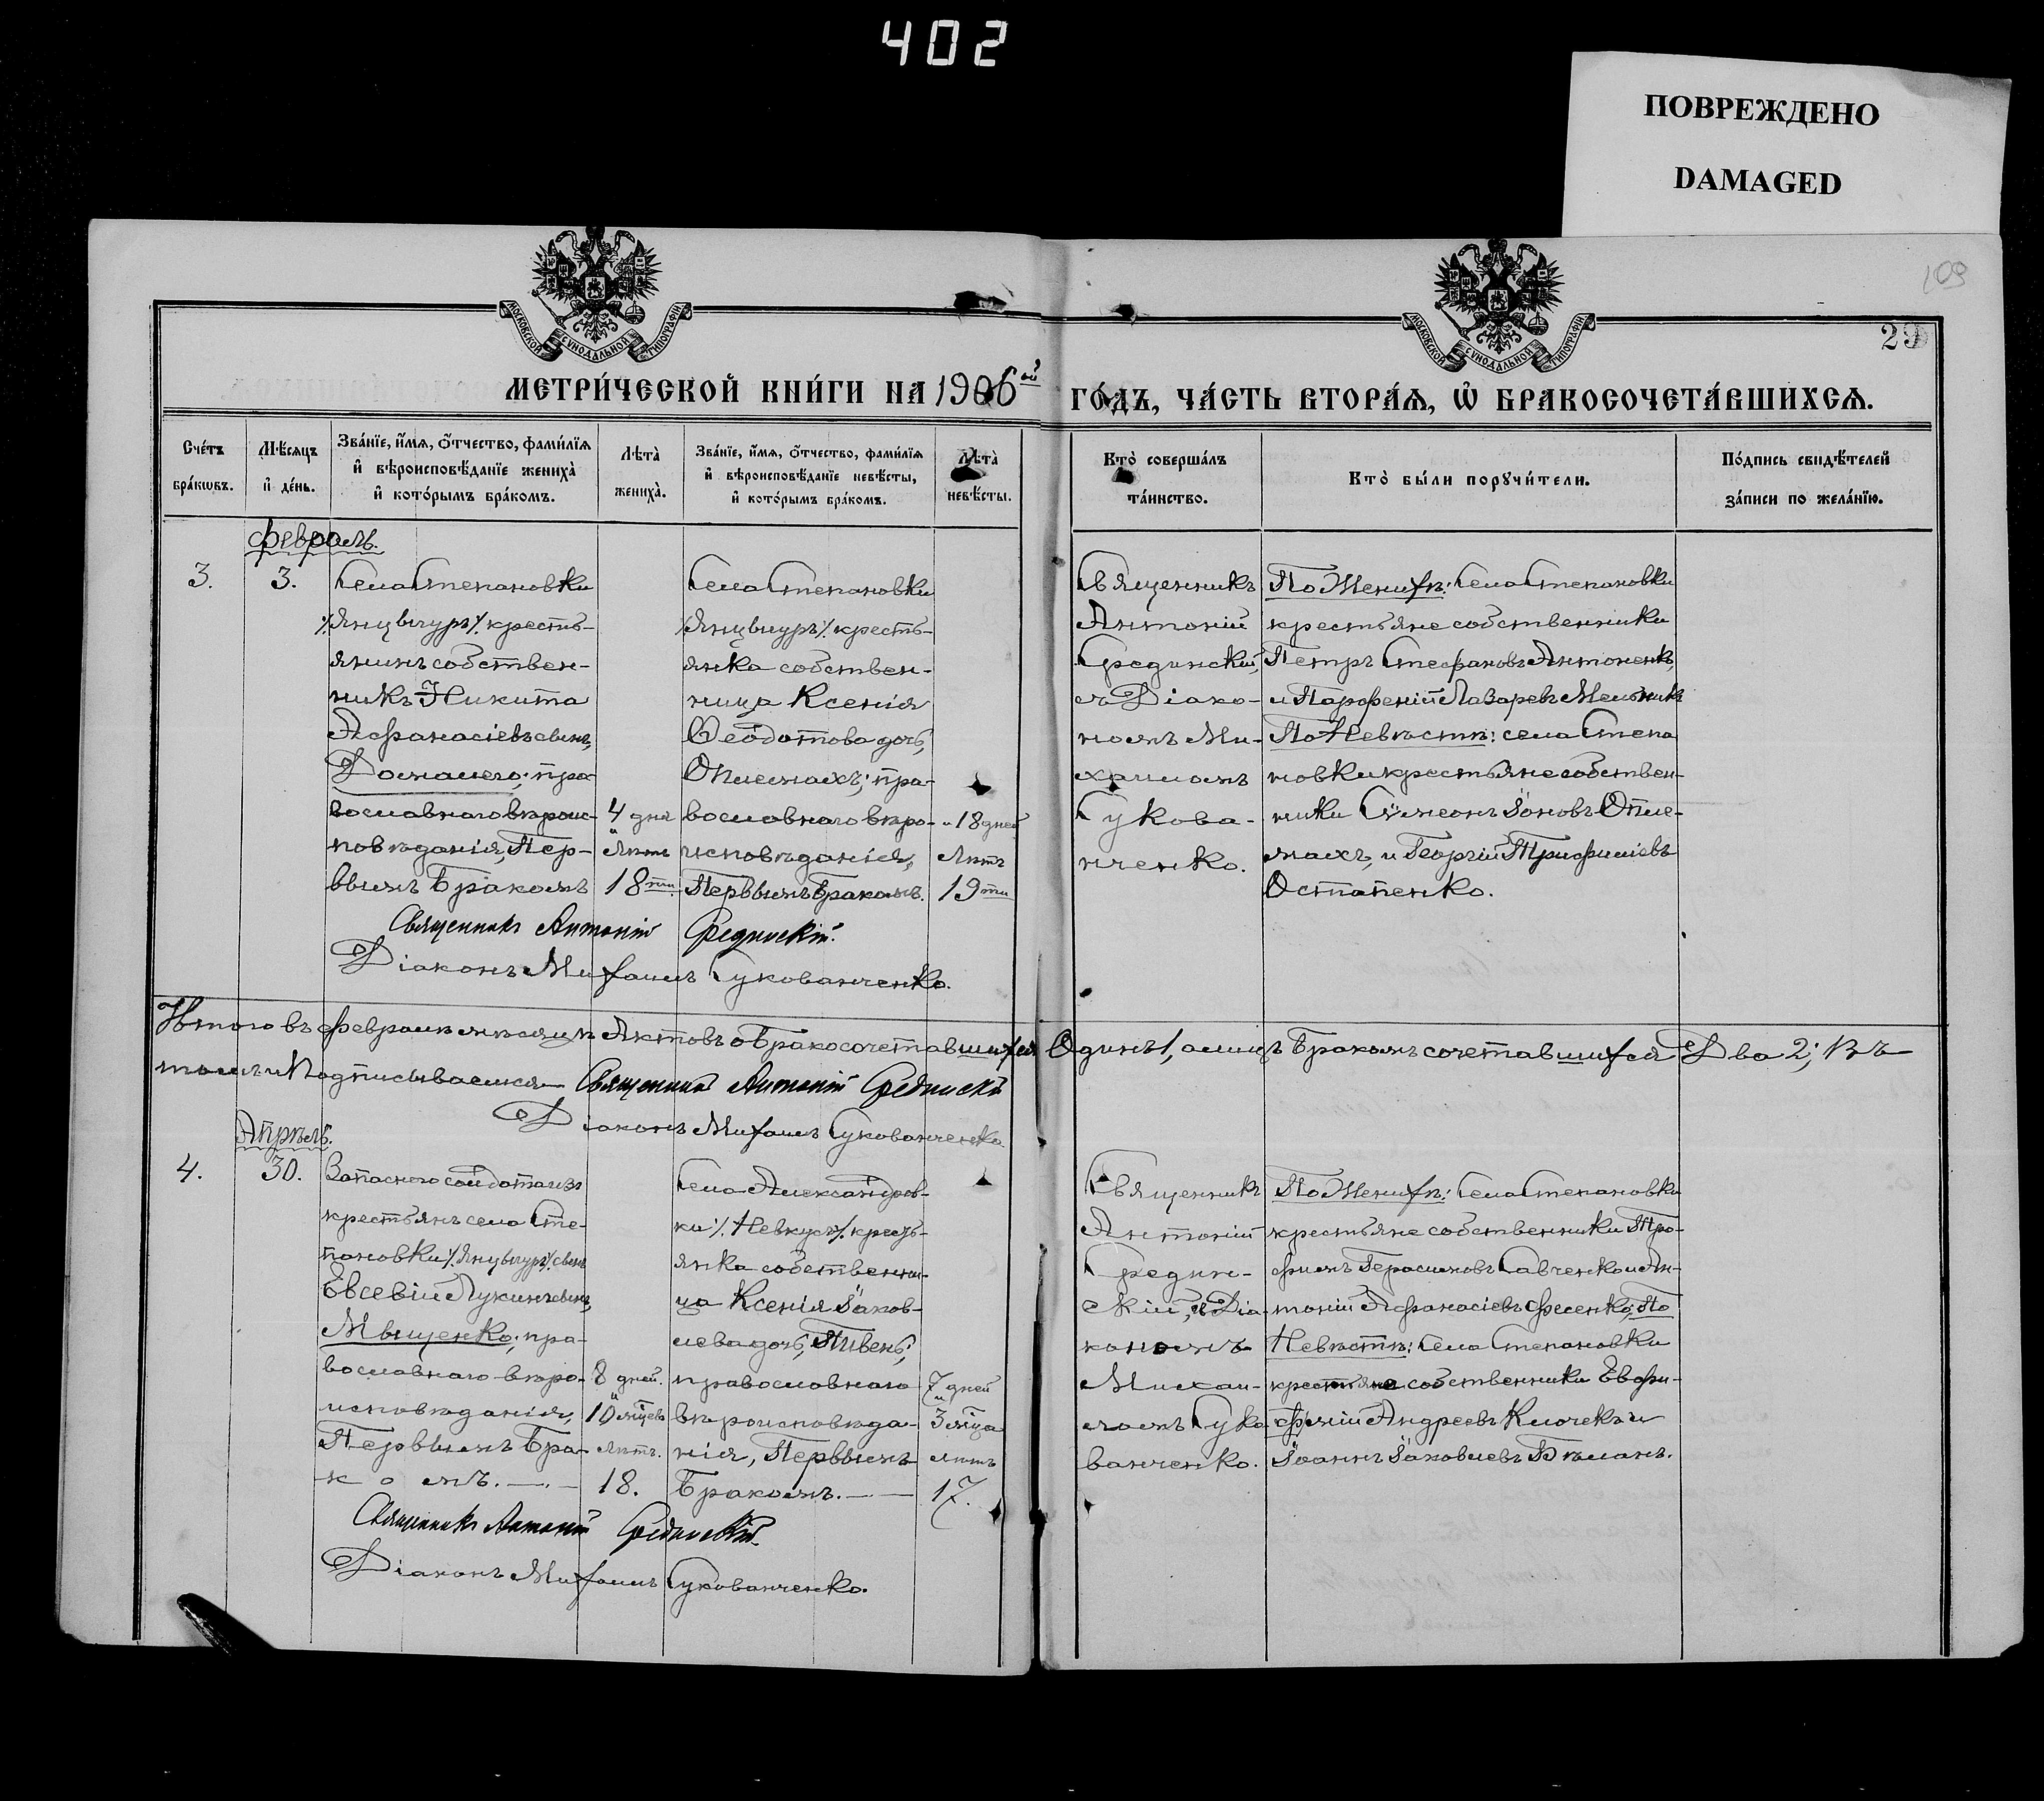 402
ПОВРЕЖДЕНО
DAMAGED
109
29
МОСКОВСКОЙ СУНОДАЛЬНОЙ ТИПОГРАФІИ.
МОСКОВСКОЙ СУНОДАЛЬНОЙ ТИПОГРАФІИ.
МЕТРИ́ЧЕСКОЙ КНИ́ГИ НА 1906ой ГО́ДЪ, ЧА́СТЬ ВТОРА́Я, Ѡ҆ БРАКОСОЧЕТА́ВШИХСЯ.
Сче́тъ
бра́кѡвъ.
Мѣ́сяцъ
и҆ де́нь.
Зва́нїе, и҆́мя, ѻ҆́тчество, фами́лїя
и҆ вѣроисповѣ́данїе жениха̀
и҆ кото́рымъ бра́комъ.
Лѣта̀
жениха̀.
Зва́нїе, и҆́мя, ѻ҆́тчество, фами́лїя
и҆ вѣроисповѣ́данїе невѣ́сты,
и҆ кото́рымъ бра́комъ.
Лѣта̀
невѣ́сты.
Кто̀ соверша́лъ
та́инство.
Кто̀ бы́ли порꙋчи́тели.
По́дпись свидѣ́телей
за́писи по жела́нїю.
Февраль.
3.
3.
Села Степановки
⁒Янцыгуръ⁒ кресть-
янинъ собствен-
никъ Никита
Аѳанасіевъ сынъ,
Домашего; пра-
вославнаго вѣроис-
повѣданія, Пер-
вымъ бракомъ
4 дня
и
лѣтъ
18ти
Села Степановки
⁒Янцыгуръ⁒ кресть-
янка собствен-
ница Ксенія
Ѳеодотова дочь,
Опимахъ; пра-
вославнаго вѣро-
исповѣданія,
Первымъ бракомъ.
и 18 дней
лѣтъ
19ти
Священникъ
Антоній
Срединскій,
съ Діако-
номъ Ми-
хаиломъ
Сукова-
нченко.
По Женихѣ: Села Степановки
крестьяне собственники
Петръ Стефановъ Антоненко,
и Парфеній Лазаревъ Мельникъ
По Невѣстѣ: села Степа
новки крестьяне собствен-
ники Сѵмеонъ Іоновъ Опи-
махъ, и Георгій Трифиліевъ
Остапенко.
Священникъ Антоній Срединскій.
Діаконъ Михаилъ Сукованченко.
Итого въ февралѣ мѣсяцѣ Актовъ о бракосочетавшихся Одинъ 1, а лицъ бракомъ сочетавшихся Два 2; въ
томъ и Подписываемся Священникъ Антоній Срединскій
Діаконъ Михаилъ Сукованченко.
Апрѣль.
4.
30.
Запасного солдата изъ
крестьянъ села Сте-
пановки ⁒Янцыгуръ⁒ сынъ
Евсевій Лукинъ сынъ,
Мыщенко; пра-
вославнаго вѣро-
исповѣданія,
Первымъ бра-
комъ.
8 дней.
и
10 мѣсяцевъ
лѣтъ.
18.
Села Александров-
ки ⁒Невкусъ⁒ кресть-
янка собственни-
ца Ксенія Іаков-
лева дочь, Пивень;
православнаго
вѣроисповѣда-
нія, Первымъ
бракомъ.
7 дней
и
3 мѣсяца
лѣтъ
17.
Священникъ
Антоній
Средин-
скій, съ Діа-
кономъ
Михаи-
ломъ Суко
ванченко.
По Женихѣ: Села Степановки
крестьяне собственники Тро-
фимъ Герасимовъ Савченко и Ан-
тоній Аѳанасіевъ Фесенко; По
Невѣстѣ: села Степановки
крестьяне собственники Евфи-
фимій Андреевъ Клочекъ и
Іоаннъ Іаковлевъ Бѣланъ.
Священникъ Антоній Срединскій.
Діаконъ Михаилъ Сукованченко.